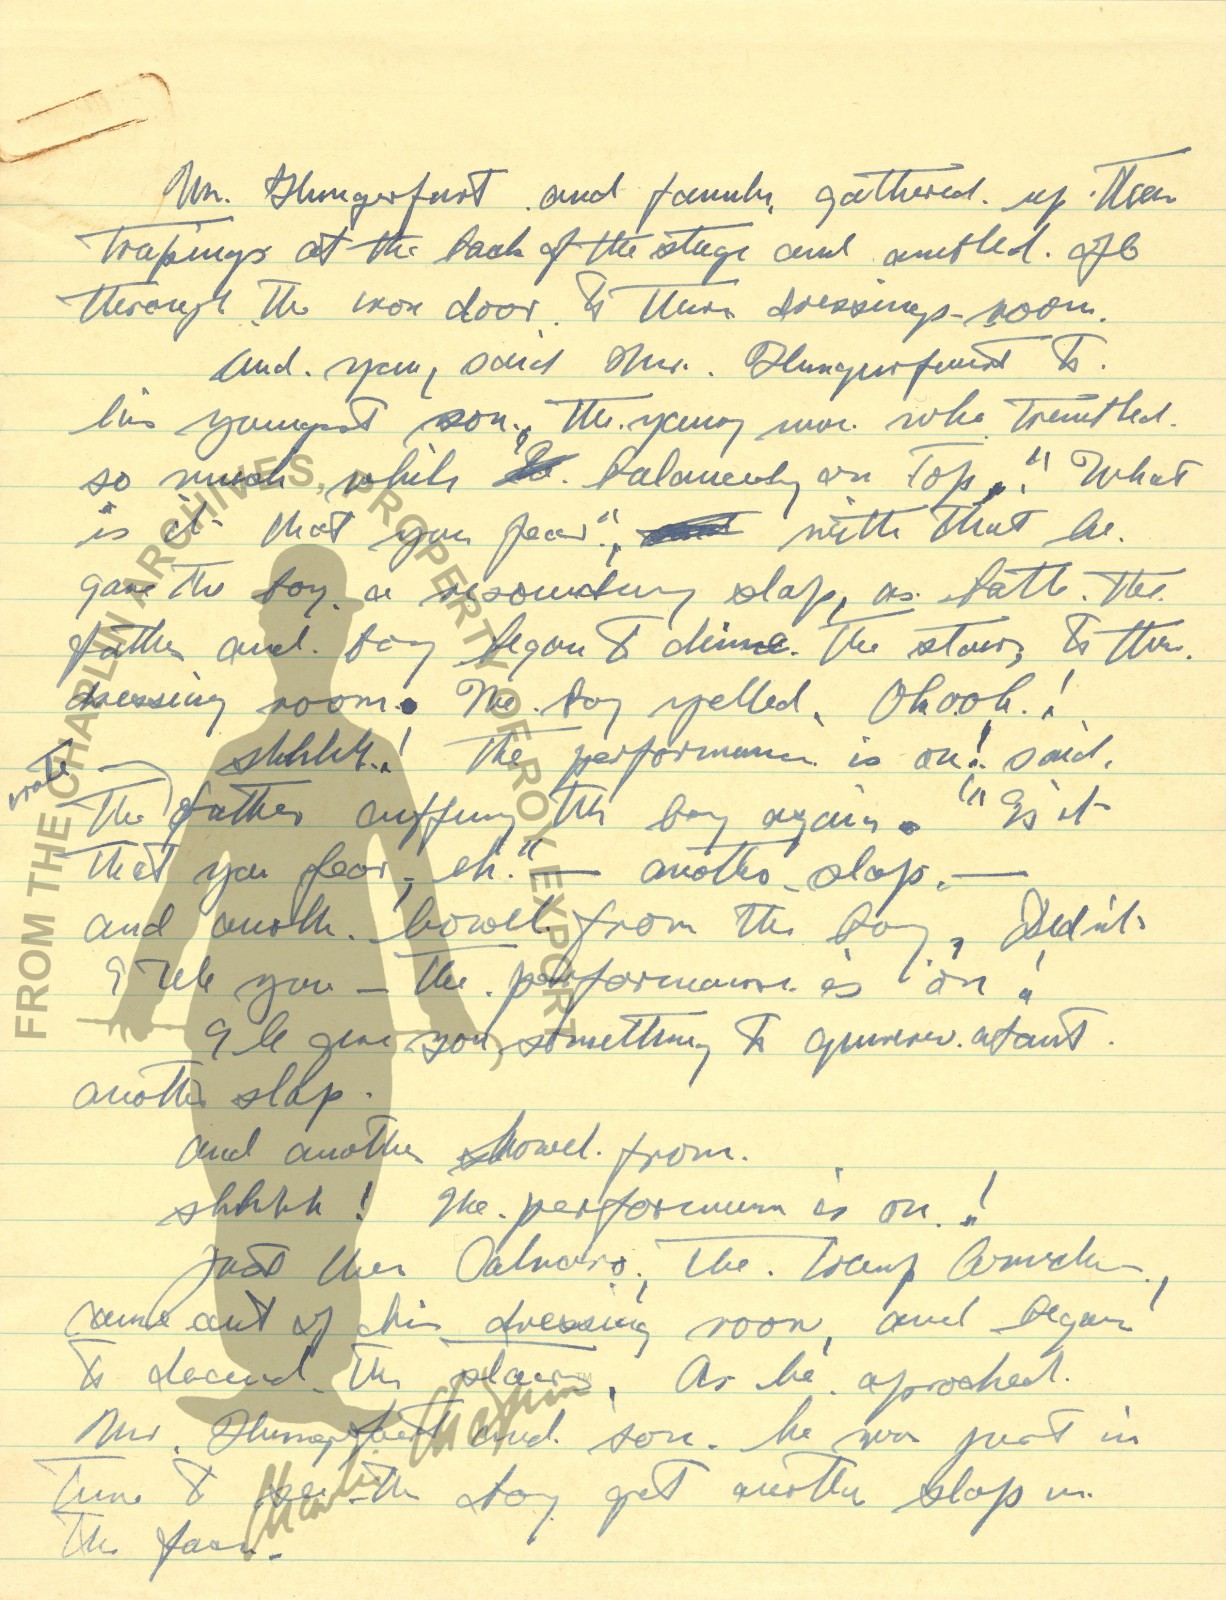 Mr. Hungerfurst and family gathered up their
trapings at the back of the stage and ambled off
through the iron door to their dressings-room.
And you, said Mr. Hungerfurst to
his youngest son, the young man who trembled
so much while balancing on top. "What
is it that you fear", with that he
gave the boy a resounding slap, as both the
father and boy began to climb the stairs to their
dressing room. The boy yelled, Ohooh!
shhhh! The performance is on! said
The father cuffing the boy again. "Is it
that you fear, eh." — another slap. —
and another howel from the boy, Did'nt
I tell you — The performance is on!
I'll give you something to quiver about
another slap.
and another howel from
shhhh! The performance is on!
just then Calvero, The Tramp Comedian,
came out of his dressing room, and began
to decend the stairs. As he aproched
Mr. Hungerfurst and son he was just in
time to see the boy get another slap in
the face.
FROM THE CHAPLIN ARCHIVES, PROPERTY OF ROY EXPORT
Charlie Chaplin
TM